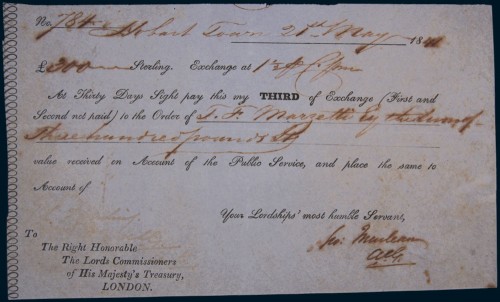 No. 784 Hobart Town 21st May 1841
£300 Sterling. Exchange at 1 Pr Ct. Prem
At Thirty Days Sight pay this my THIRD of Exchange (First and
Second not paid) to the Order of J. F. Marzetti Esq the Sum of
Three hundred pounds Stg
value received on Account of the Public Service, and place the same to
Account of
Your Lordships' most humble Servant,
To
The Right Honorable
The Lords Commissioners
of His Majesty's Treasury,
LONDON.
ACG